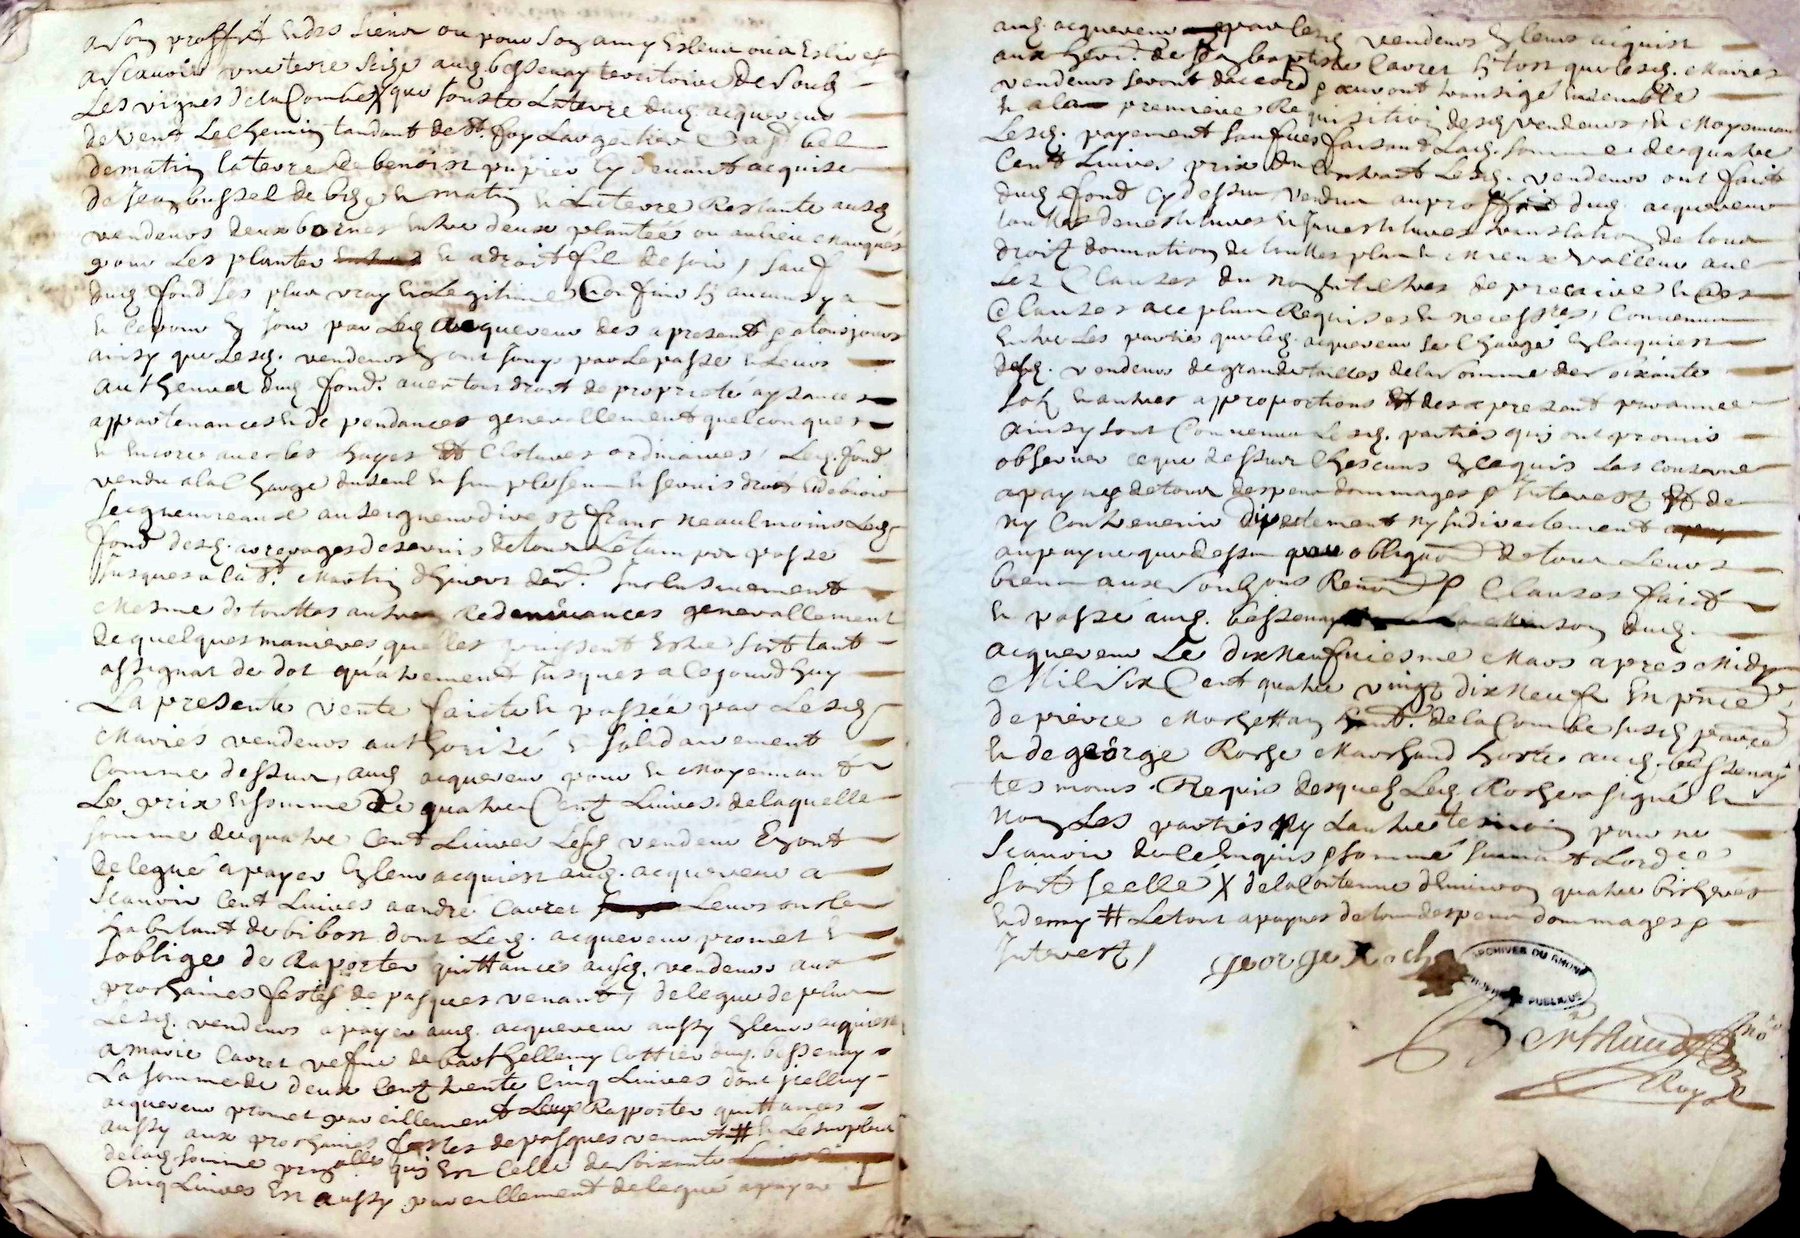 a son proffit et des siens ou pour son amy esleu ou a eslire
a scavoir une terre size aud bessenay territoire de soubz
Les vignes de la Combe X que jouste La terre dud acquereur
de vent Le chemin tendant de st. foy Largentier a
de matin la terre de benoist cy devant acquise
de Jean bussel de bize et matin et La terre Restante ausd
vendeurs deux bornes entre deux plantée ou au lieu marqués
pour Les planter et a droit fil de soir / sauf
dud fond ses plus vray et Legitimes Confins sy aucuns y a
et ce pour en jouir par Led acquereur des a present et a tousjours
ainsy que Lesd. vendeurs en ont jouy par Le passé et Leurs
autheurs dud fond. avec tous droit de proprieté aysances
appartenances et de pendances generallement quelconques
et encore avec les hayes et Clotures ordinaires / Led. fond
vendu a la Charge du seul et simple servis droit et debvoir
seigneuriaux au seigneur direct franc neaulmoins Led
fond desd. arrerages de servis de tout Le temps passé
Jusques a la st. Martin dhivers der. Inclusivement
Mesme de touttes autres Redevances generallement
de quelques manieres quelles puissent estre soit tant
assignat de dot quautrement Jusques a ce jourdhuy
La presente vente faicte et passée par Lesd
Mariés vendeurs authorizé et solidairement
Comme dessus, aud acquereur pour et Moyennant
Le prix et somme De quatre Cent Livres. de laquelle
somme de quatre Cent Livres Lesd vendeurs En ont
delegué a payer En leur acquict aud. acquereur a
scavoir Cent Livres a andré Cavret Leurs oncle
habitant de bibost dont Led. acquereur promet et
soblige de Raporter quittances ausd. vendeurs aux
prochaines festes de pasques venant, delegue de plus
Lesd. vendeurs a payer aud. acquereur aussy En leurs acquict
a marie Cavret vefve de barthellemy Cottier dud. bessenay
La somme de deux Cent trente Cinq Livres dont icelluy
acquereur promet pareillement Rapporter quittances
aussy aux prochaines festes de pasques venant # et Le surplus
de lad. somme qui est Celle de soixante
Cinq Livres Est aussy pareillement delegué a payer
aud. acquereur par lesd vendeurs En leurs acquict
aux herit. de Jean baptiste Cavret sy tost que lesd. Mariés
vendeurs seront daccord transigé Ensemble
et a la premiere Requisition desd vendeurs, et Moyennant
Lesd. payement faisant Lad. somme de quatre
Cent Livres prix du Contract Lesd. vendeurs ont faict
dud fond cy dessus vendu au proffit dud. acquereur
touttes devestitures et Investitures translation de tous
droit donnation de touttes plus et Mieux valleur avec
Les Clauses du Constitut de precaire et
Clauses a ce plus Requises et necessres, Convenu
Entre Les parties que led. acquereur se charge En lacquict
desd. vendeurs de grande tailles de la somme de soixante
solz et autres a pproportions et des a present par année
ainsy sont Convenu Lesd. parties qui ont promis
observer ce que dessus Chescuns En ce qui Les conserne
a payne de tous despens dommages Interest et de
ny Contrevenir directement ny Indirectement
au payne que dessus obliga'on de tous Leurs
biens aux Renon'on Clauses faict
et passé aud. bessenay Maison dud.
acquereur Le dix Neufviesme Mars apres Midy
Mil Six Cent quatre vingt dix Neuf En pnce
de pierre de la Combe susd paroisse
et de george Roche Marchand hoste aud. bessenay
tesmoins. Requis desquelz Led. Roche a signé et
Non Les parties Ny Lautre tesmoin pour ne
scavoir de ce Enquis sommé suivant Lordce
soit seellé X de la Contenue denviron quatre bicherés
et demy # Le tout a paynes de tous despens dommages
Interest /
george Roche
ARCHIVES DU RHONE
PUBLIQUE
Berthaud
Royal